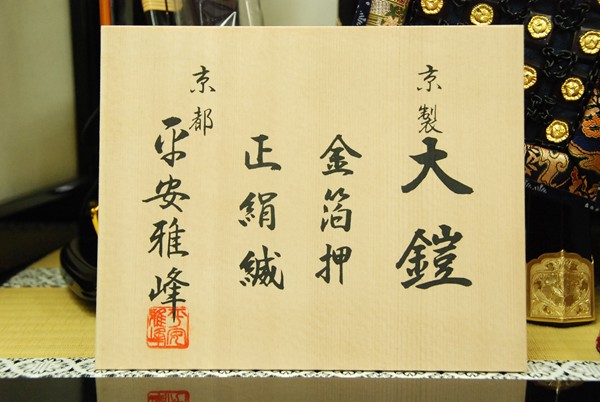 京製大鎧
金箔押
正絹縅
京都平安雅峰
平安雅峰